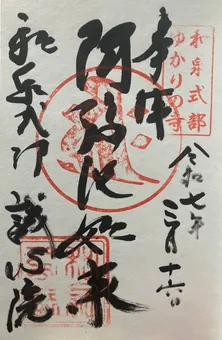 奉拝
和泉式部
ゆかりの寺
令和七年
三月十六日
阿弥陀如来
誠心院